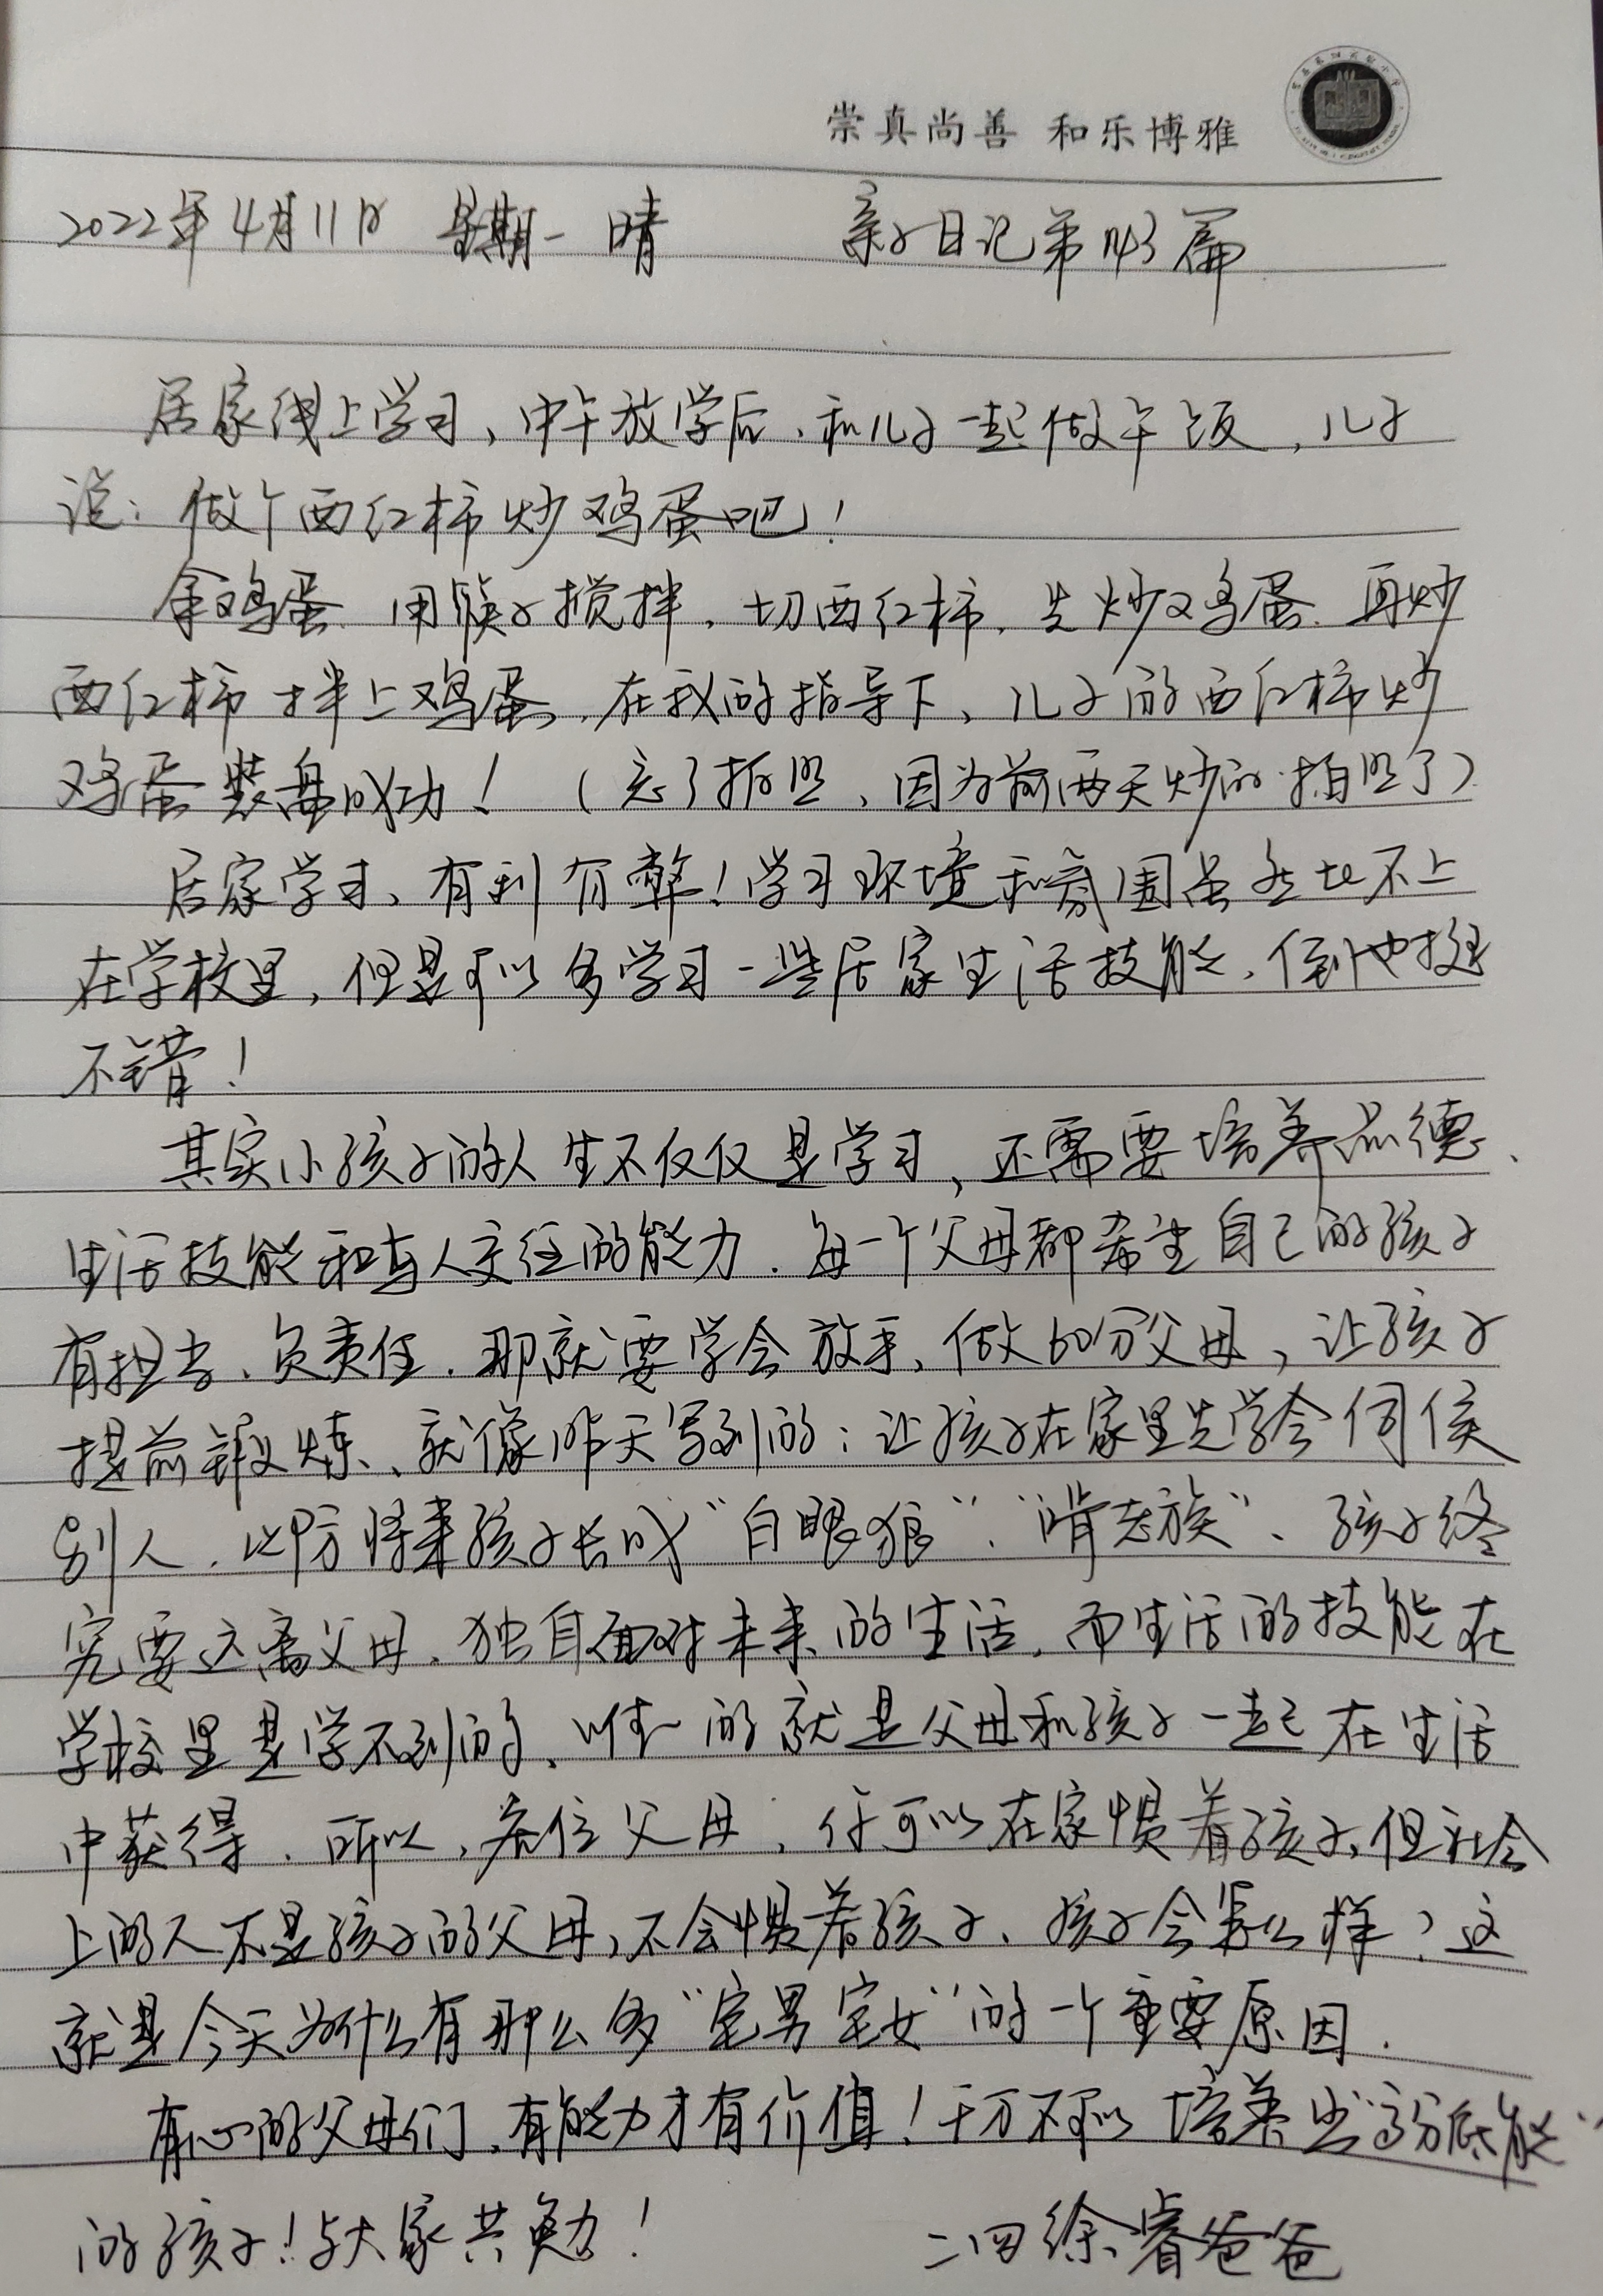 崇真尚善 和乐博雅
2022年4月11日 星期一 晴 亲子日记第143篇
居家线上学习、中午放学后、和儿子一起做午饭,儿子
说:做个西红柿炒鸡蛋吧!
拿鸡蛋、用筷子搅拌、切西红柿、先炒鸡蛋、再炒
西红柿拌上鸡蛋、在我的指导下、儿子的西红柿炒
鸡蛋装盘成功!(忘了拍照、因为前两天炒的拍照了)
居家学习、有利有弊!学习环境和氛围虽然比不上
在学校里,但是可以多学习一些居家生活技能、倒也挺
不错!
其实小孩子的人生不仅仅是学习,还需要培养品德、
生活技能和与人交往的能力.每一个父母都希望自己的孩子
有担当、负责任.那就要学会放手、做60分父母,让孩子
提前锻炼、就像昨天写到的:让孩子在家里先学会伺侯
别人.以防将来孩子长成“白眼狼”、“啃老族”、孩子终
究要远离父母.独自面对未来的生活.而生活的技能在
学校里是学不到的、唯一的就是父母和孩子一起在生活
中获得.所以,各位父母,你可以在家惯着孩子,但社会
上的人不是孩子的父母,不会惯着孩子、孩子会怎么样?这
就是今天为什么有那么多“宅男宅女”的一个重要原因.
有心的父母们、有能力才有价值!千万不可以培养出“高分低能”
的孩子!与大家共勉! 二四徐睿爸爸